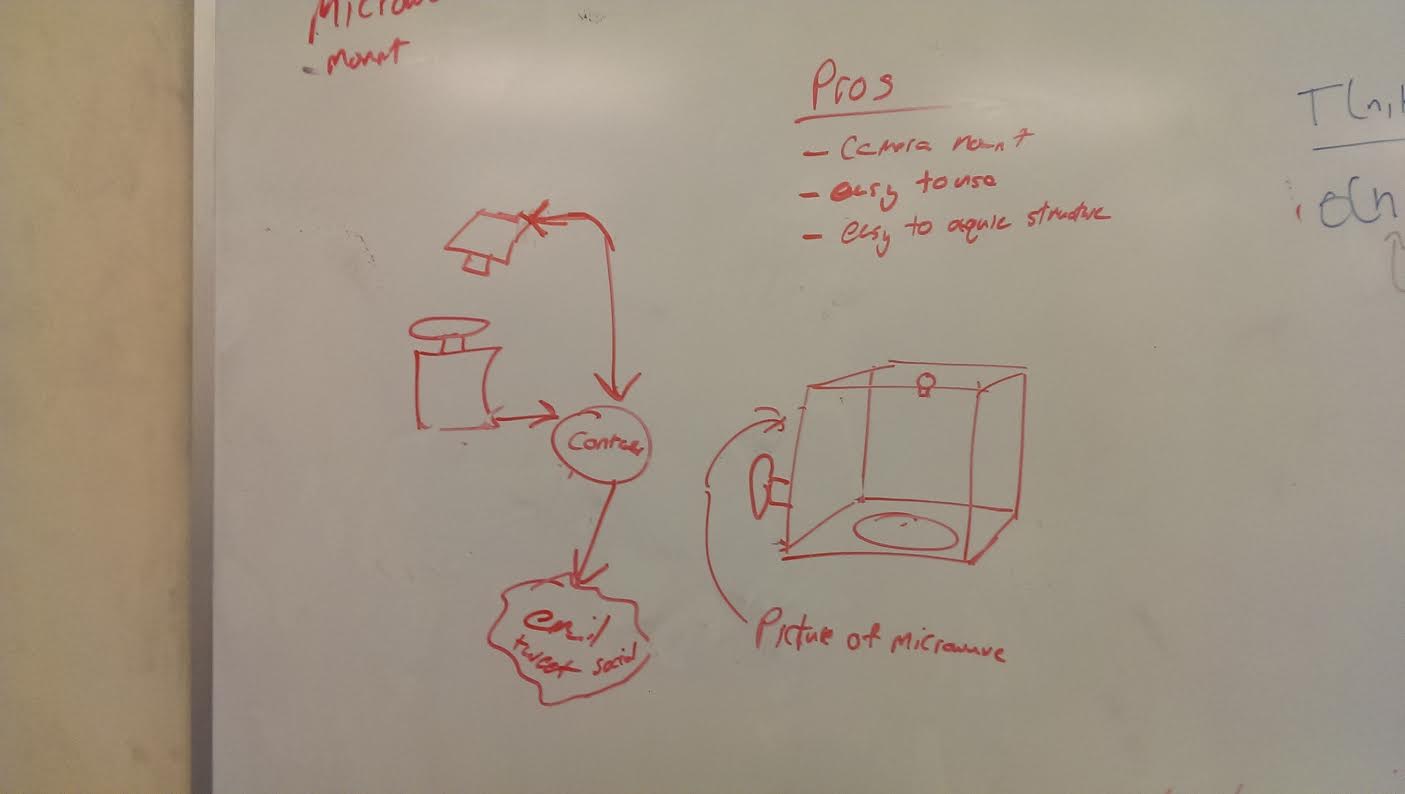 Microw
- Mount
Pros
- Camera mount
- easy to use
- easy to aquie structure
T(n,
O(n
email
tweet social
Picture of microwave